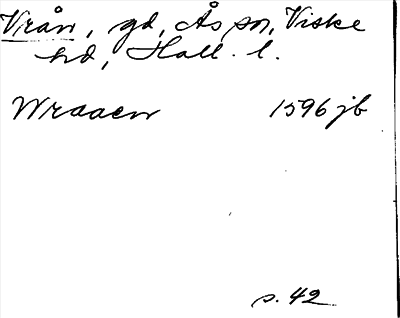 Vrån, gd, Ås sn, Viske
hd, Hall. l.
Wraaen 1596 jb
s. 42